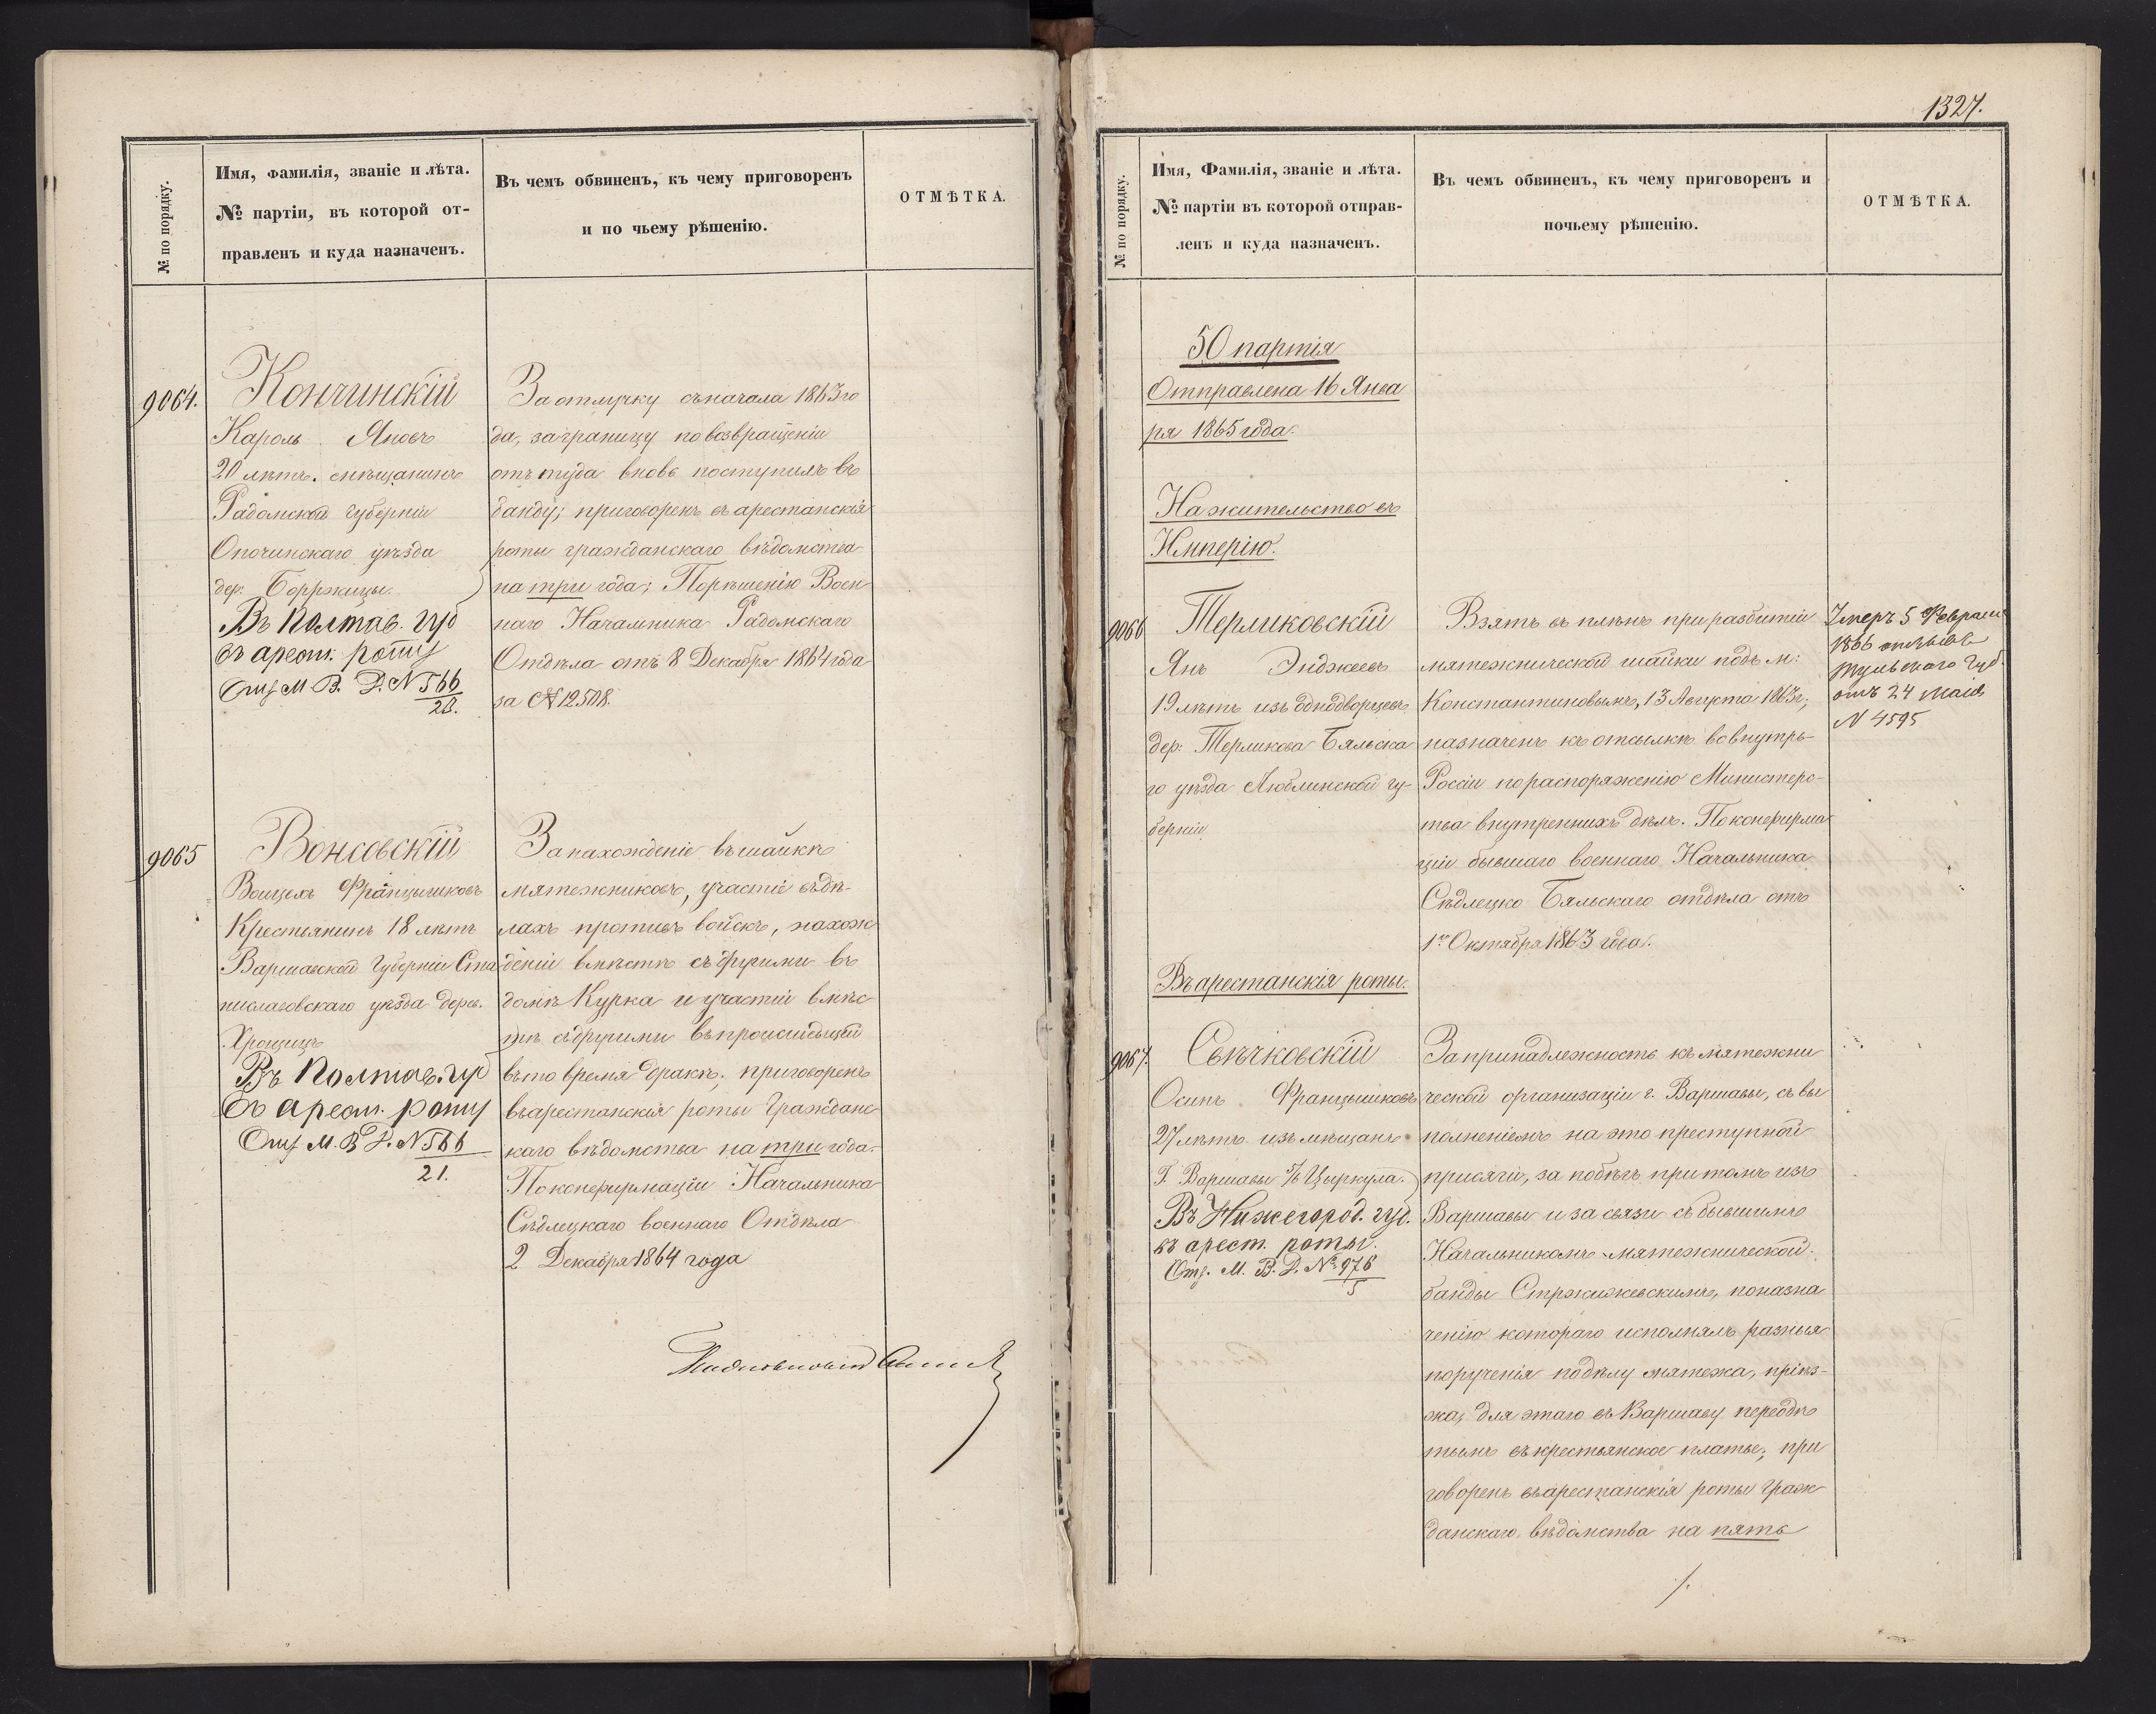 № по порядку.
Имя, фамилія, званіе и лѣта.
№ партіи, въ которой от-
правленъ и куда назначенъ.
Въ чемъ обвиненъ, къ чему приговоренъ
и по чьему рѣшенію.
ОТМѢТКА.
9064.
Кончинскій
Кароль Яновъ
20 лѣтъ. мѣщанинъ
Радомской губерніи
Опочинскаго уѣзда
дер.
Въ Полтав. губ
въ арест. роту
Отз М. В. Д. N 566
20.
За отлучку съ начала 1863 го
да, за границу по возвращеніи
отъ туда вновь поступилъ въ
банду; приговоренъ въ арестанскія
роты гражданскаго вѣдомства
на три года; По рѣшенію Воен
наго Начальника Радомскаго
Отдѣла отъ 8 Декабря 1864 года
за № 12508.
9065
Вонсовскій
Войцехъ Францишковъ
Крестьянинъ 18 лѣтъ
Варшавской Губерніи Ста
ниславовскаго уѣзда дерев.
Въ Полтав. губ
въ арест. роту
Отз М. В. Д. N 566
21.
За нахожденіе въ шайкѣ
мятежниковъ, участіе въ дѣ-
лахъ противъ войскъ, нахож
деніи вмѣстѣ съ другими въ
домѣ Курка и участіи вмѣс
тѣ съ другими въ происшедшей
въ то время дракѣ; приговоренъ
въ арестанскія роты Гражданс
каго вѣдомства на три года.
По конфирмаціи Начальника
Сѣдлецкаго военнаго Отдѣла
2 Декабря 1864 года
1327.
№ по порядку.
Имя, Фамилія, званіе и лѣта.
№ партіи въ которой отправ-
ленъ и куда назначенъ.
Въ чемъ обвиненъ, къ чему приговоренъ и
почьему рѣшенію.
ОТМѢТКА.
50 партія
Отправлена 16 Янва
ря 1865 года.
На жительство въ
Имперію.
9066
Терликовскій
Янъ Энджеевъ
19 лѣтъ изъ однодворцевъ
дер: Терликова Бяльска
го уѣзда Люблинской гу-
берніи
Взятъ въ плѣнъ при разбитіи
мятежнической шайки подъ м:
Константиновымъ, 13 Августа 1863 г.,
назначенъ къ отсылкѣ во внутрь
Россіи по распоряженію Министерс-
тва внутреннихъ дѣлъ. По конфирма
ціи бывшаго военнаго Начальника
Сѣдлецко Бяльскаго отдѣла отъ
1го Октября 1863 года.
Умеръ 5 Февраля
1866 отзывъ
Тульскаго Губ.
отъ 24 Маія
N 4595
Въ арестанскія роты.
9067.
Свѣчковскій
Осипъ Францишковъ
27 лѣтъ изъ мѣщанъ
Г. Варшавы 5/6 Цыркула.
Въ Нижегород. губ.
въ арест. роты.
Отз. М. В. Д. № 978
5
За принадлежность къ мятежни
ческой организаціи г. Варшавы, съ вы
полненіемъ на это преступной
присяги, за побѣгъ при томъ изъ
Варшавы и за связи съ бывшимъ
Начальникомъ мятежнической
банды Стржижевскимъ, по назна
ченію котораго исполнялъ разныя
порученія по дѣлу мятежа, пріѣз-
жая для этаго въ Варшаву переодѣ
тымъ въ крестьянское платье, при
говоренъ въ арестанскія роты Граж
данскаго вѣдомства на пять
/.